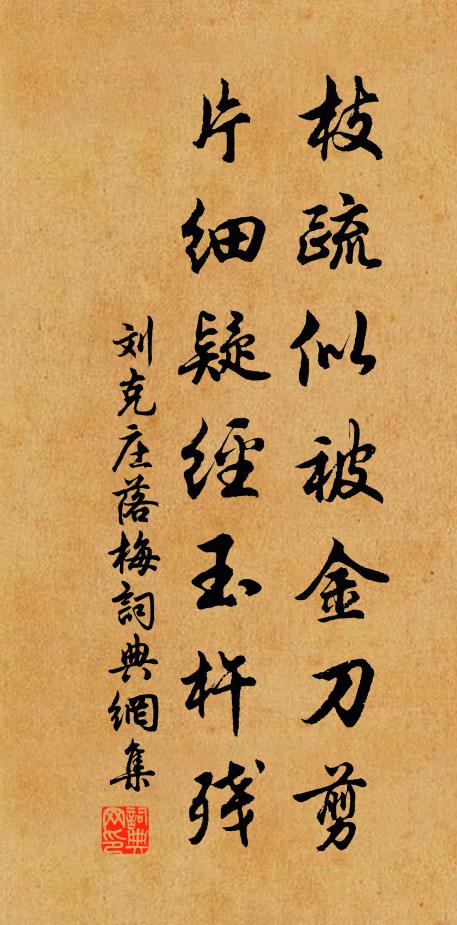 枝疏似被金刀剪
片细疑经玉杵残
刘克庄落梅詞典網集
詞典网印